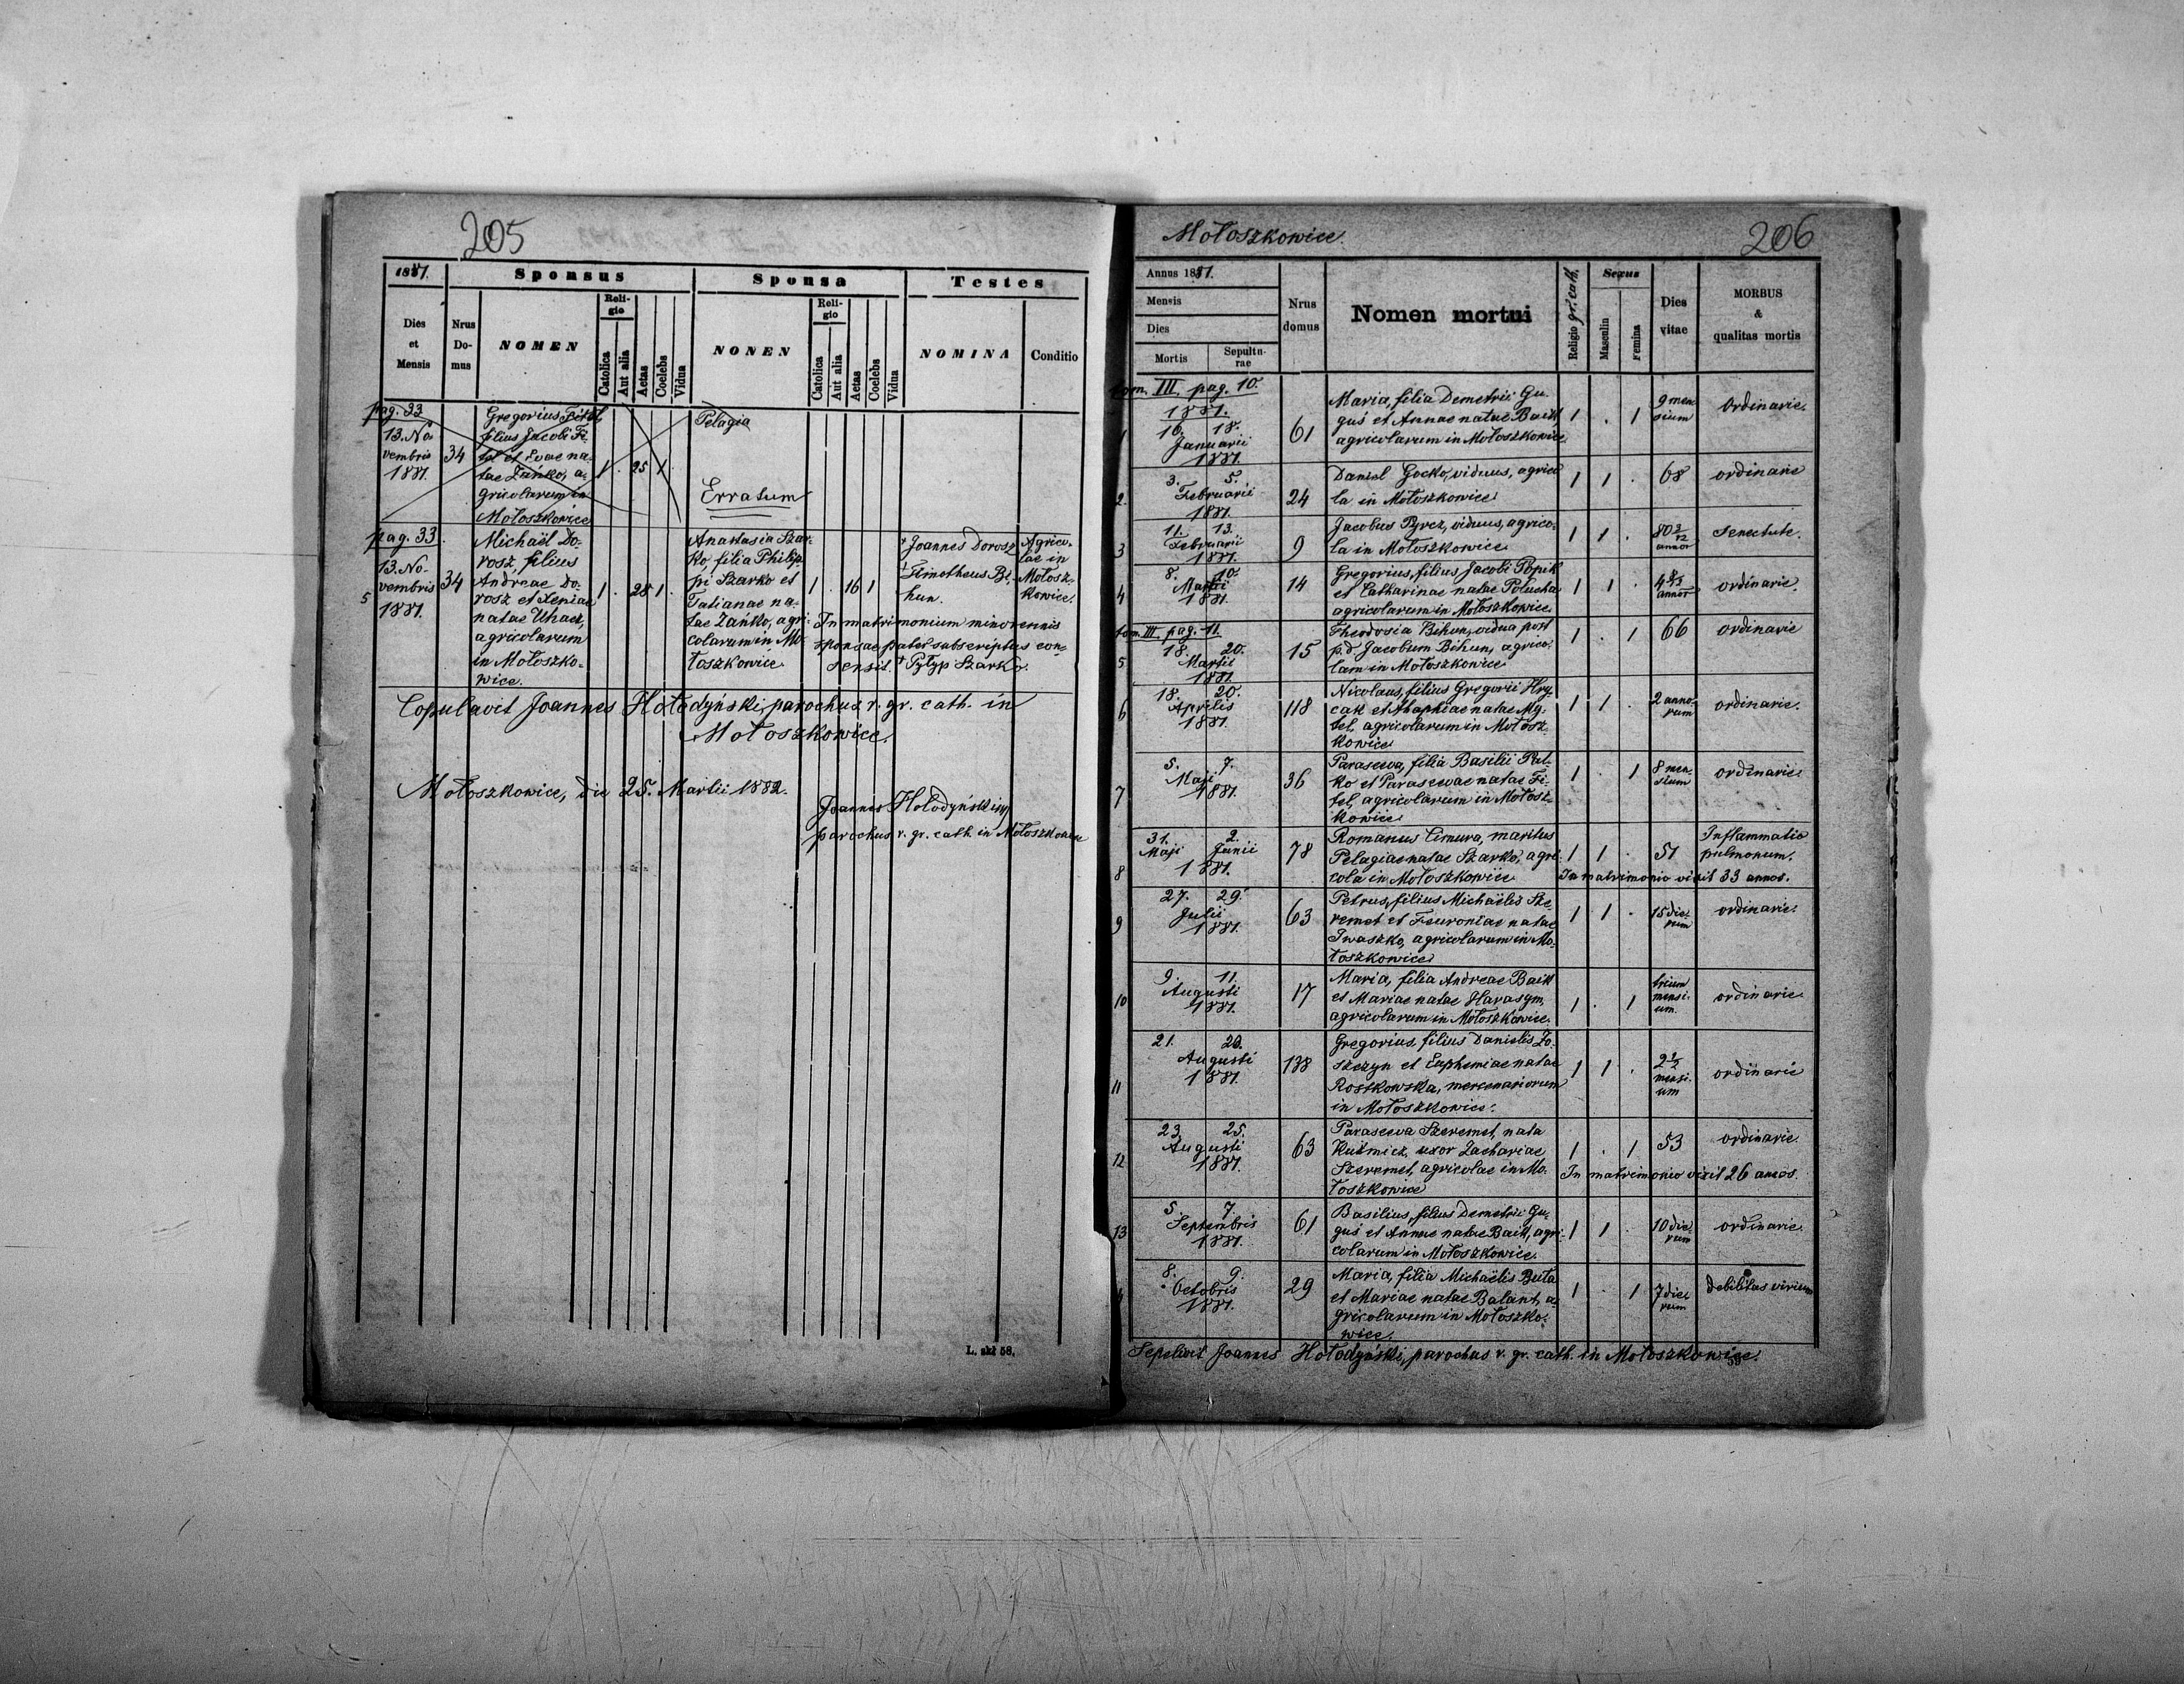 205
1881.
Sponsus
Sponsa
Testes
Dies et Mensis
Nrus Domus
NOMEN
Religio
Catolica
Aut alia
Aetas
Coelebs
Vidua
NONEN
Religio
Catolica
Aut alia
Aetas
Coelebs
Vidua
NOMINA
Conditio
pag. 33
13. No-
vembris
1881.
34
Gregorius Fitel,
filius Jacobi Fi-
tel et Evae na-
tae Zańko, a-
gricolarum in
Mołoszkowice
1 . 25 1
Pelagia
Erratum
pag. 33.
5
13. No-
vembris
1881.
34
Michaël Do-
rosz, filius
Andreae Do-
rosz et Xeniae
natae Uhacz,
agricolarum
in Mołoszko-
wice.
1 . 28 1 .
Anastasia Szar-
ko, filia Philip-
pi Szarko et
Tatianae na-
tae Zańko, agri-
colarum in Mo-
łoszkowice.
1 . 16 1
+Joannes Dorosz
+Timotheus Bi-
hun.
Agrico-
lae in
Mołosz-
kowice.
In matrimonium minorennis
sponsae pater subscriptus con-
sensit. +Pylyp Szarko.
Copulavit Joannes Hołodyński, parochus r. gr. cath. in
Mołoszkowice.
Mołoszkowice, die 25. Martii 1882.
Joannes Hołodyński
parochus r. gr. cath. in Mołoszkowice
L. skł 58.
Mołoszkowice.
206
Annus 1881.
Mensis
Dies
Mortis
Sepulturae
Nrus domus
Nomen mortui
Religio gr. cath.
Sexus
Masculin
Femina
Dies vitae
MORBUS
&
qualitas mortis
tom. III. pag. 10.
1881.
1
16. 18.
Januarii
1881.
61
Maria, filia Demetrii Gu-
guś et Annae natae Baik,
agricolarum in Mołoszkowice
1 . 1
9 men-
sium
Ordinarie.
2.
3. 5.
Februarii
1881.
24
Daniel Gocko, viduus, agrico-
la in Mołoszkowice
1 1 .
68
ordinarie
3
11. 13.
Februarii
1881.
9
Jacobus Pyrcz, viduus, agrico-
la in Mołoszkowice
1 1 .
80 2/12
annor
Senectute.
4
8. 10.
Martii
1881.
14
Gregorius, filius Jacobi Popik
et Catharinae natae Polucha
agricolarum in Mołoszkowice.
1 1 .
4 8/12
annor
ordinarie.
tom. III. pag. 11.
5
18. 20.
Martii
1881.
15
Theodosia Bihun, vidua post
p.d. Jacobum Bihun, agrico-
lam in Mołoszkowice
1 . 1
66
ordinarie
6
18. 20.
Aprilis
1881.
118
Nicolaus, filius Gregorii Hry-
cak et Ahaphiae natae My-
tel, agricolarum in Mołosz-
kowice
1 1 .
2 anno-
rum
ordinarie.
7
5. 7.
Maji
1881.
36
Parascewa, filia Basilii Pal-
ko et Parascewae natae Fi-
tel, agricolarum in Mołosz-
kowice
1 . 1
8 men-
sium
ordinarie
8
31. 2.
Maji Junii
1881.
78
Romanus Cimura, maritus
Pelagiae natae Szarko, agri-
cola in Mołoszkowice
1 1 .
51
Inflammatio
pulmonum.
In matrimonio vixit 33 annos.
9
27. 29.
Julii
1881.
63
Petrus, filius Michaëlis Sze-
remet et Feuroniae natae
Iwaszko, agricolarum in Mo-
łoszkowice
1 1 .
15 die-
rum
ordinarie.
10
9. 11.
Augusti
1881.
17
Maria, filia Andreae Baik
et Mariae natae Harasym,
agricolarum in Mołoszkowice.
1 . 1
trium
mensi-
um.
ordinarie.
11
21. 23.
Augusti
1881.
138
Gregorius, filius Danielis Zo-
szczyn et Euphemiae natae
Roszkowska, mercenariorum
in Mołoszkowice.
1 1 .
2 1/2
mensi-
um
ordinarie
12
23. 25.
Augusti
1881.
63
Parascewa Szeremet, nata
Kuśmicz, uxor Zachariae
Szeremet, agricolae in Mo-
łoszkowice
1 . 1
53
ordinarie.
In matrimonio vixit 26 annos.
13
5. 7.
Septembris
1881.
61
Basilius, filius Demetrii Gu-
guś et Annae natae Baik, agri-
colarum in Mołoszkowice.
1 1 .
10 die-
rum
ordinarie.
8. 9.
Octobris
1881.
29
Maria, filia Michaëlis Buta
et Mariae natae Balant, a-
gricolarum in Mołoszko-
wice.
1 . 1
7 die-
rum
debilitas virium
Sepelivit Joannes Hołodyński, parochus r. gr. cath. in Mołoszkowice.
59